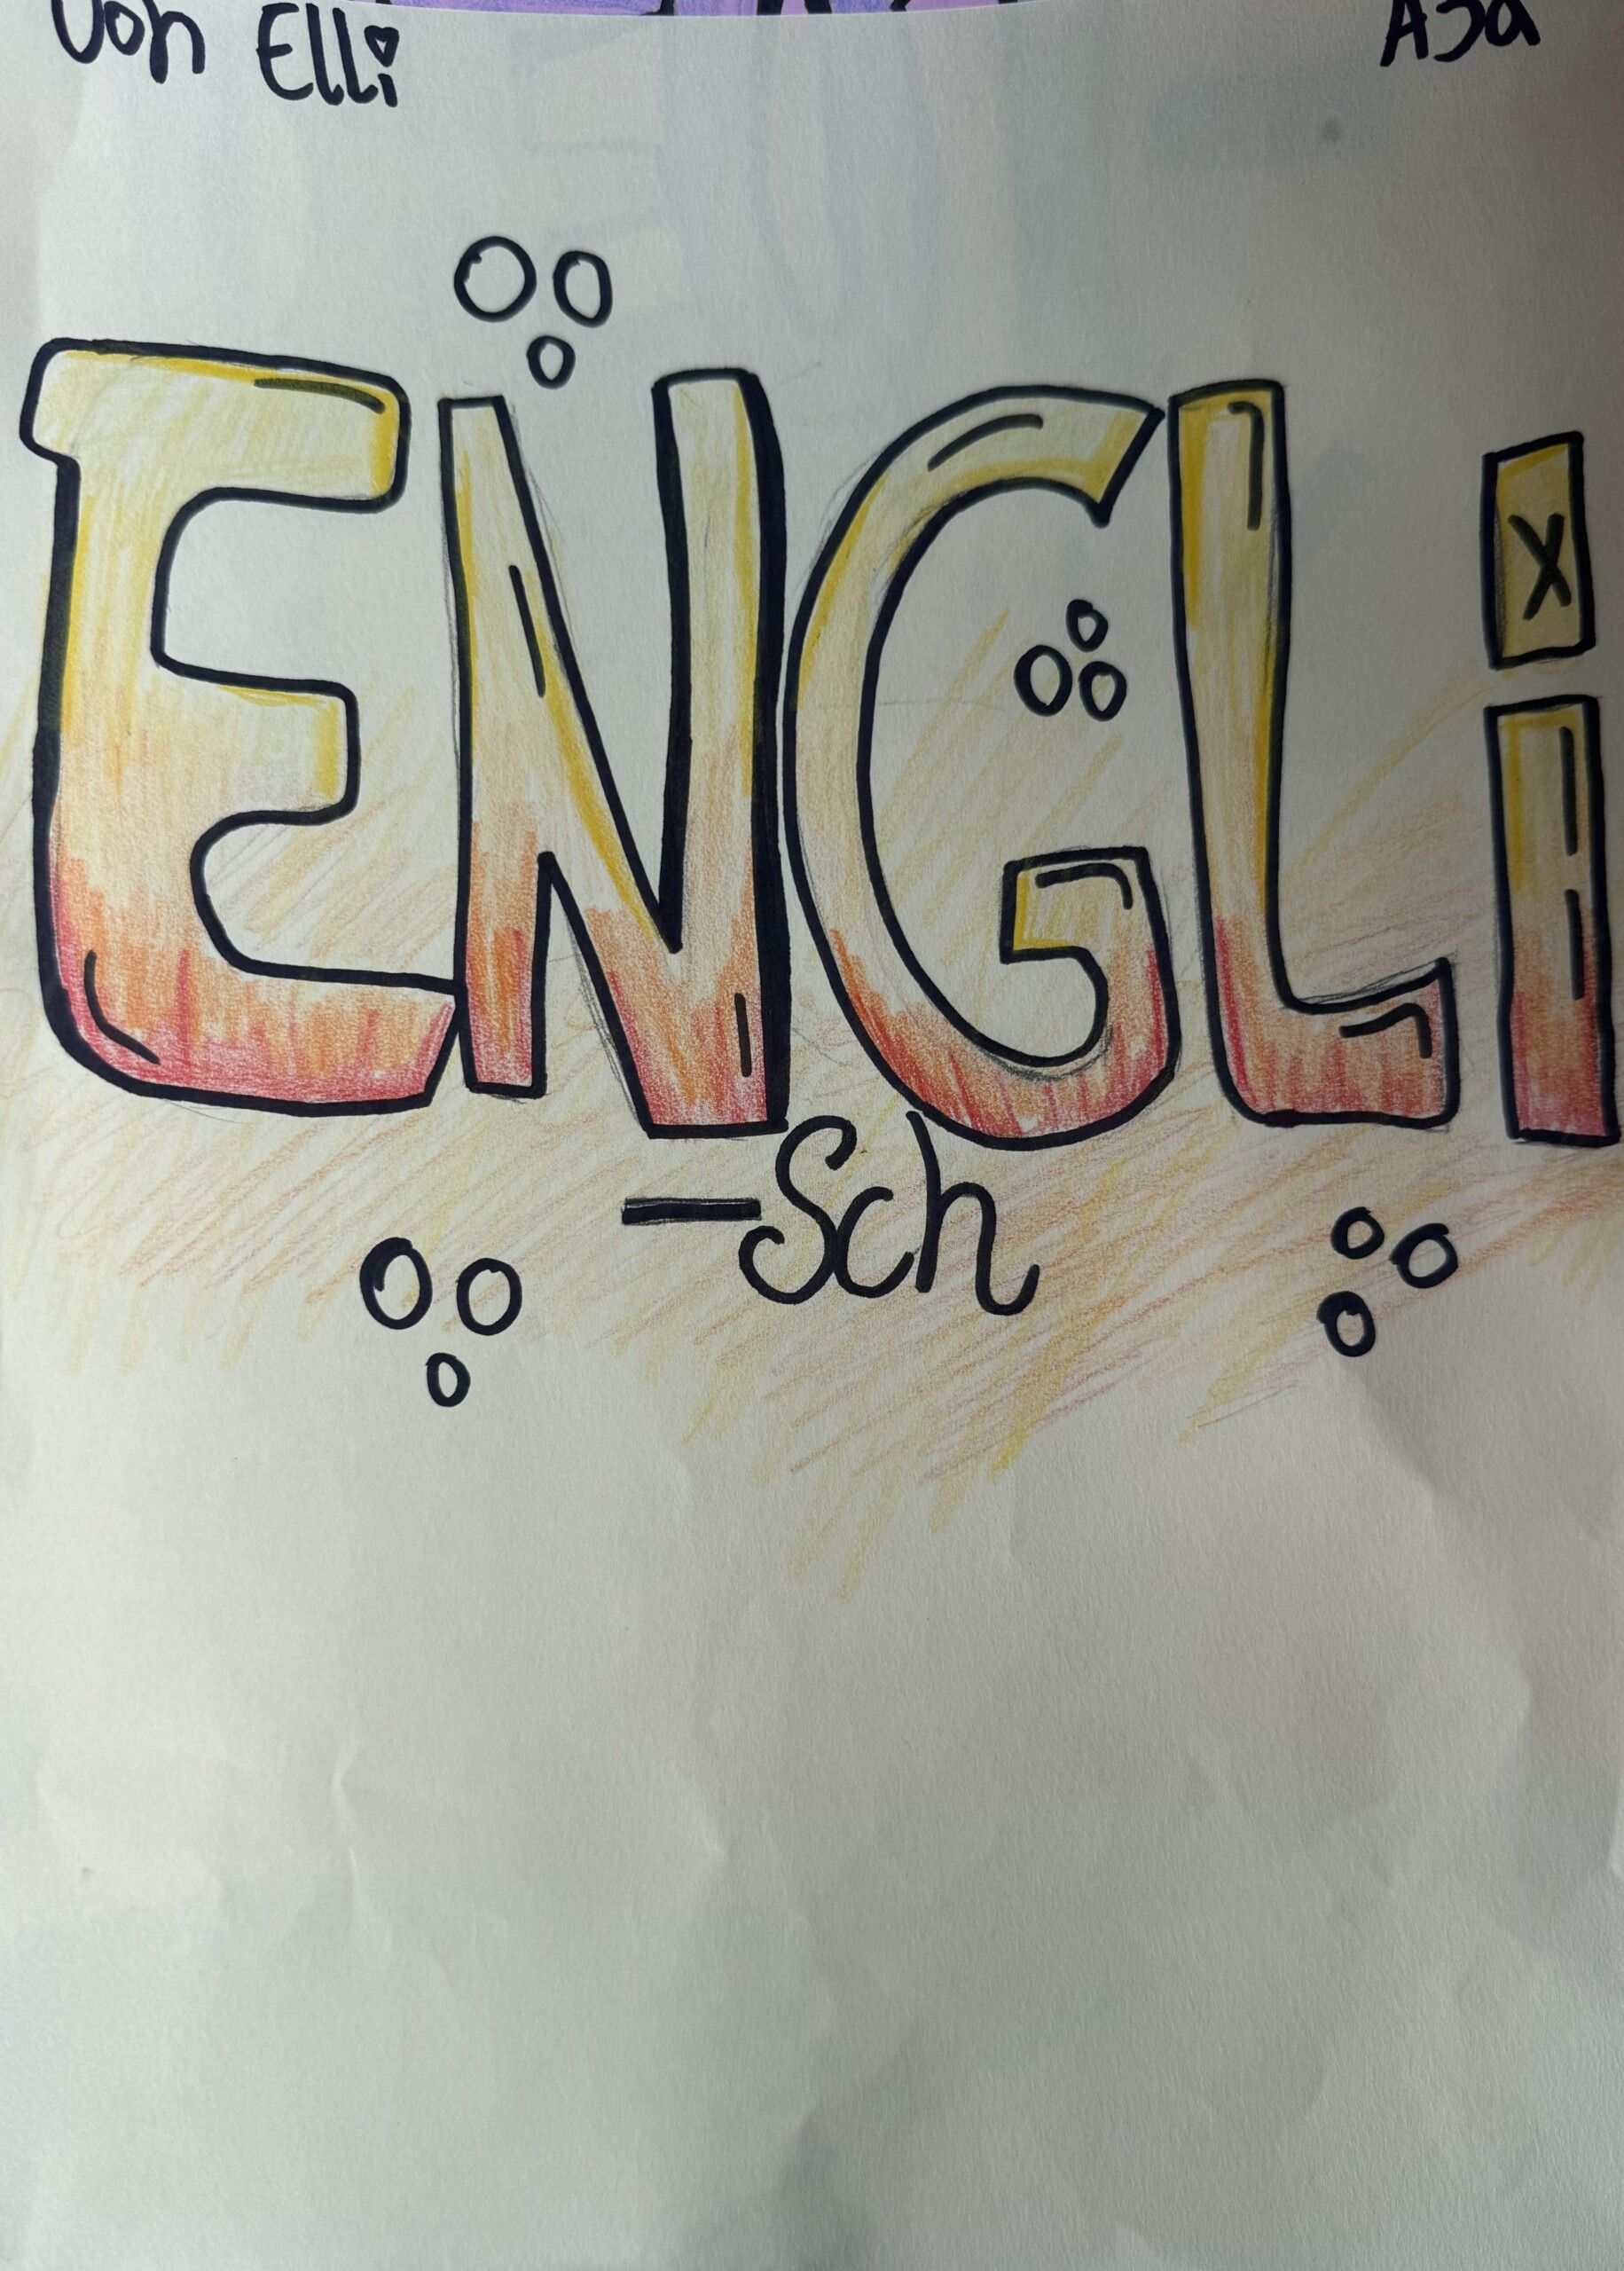 Von Elli
ENGLi
-Sch